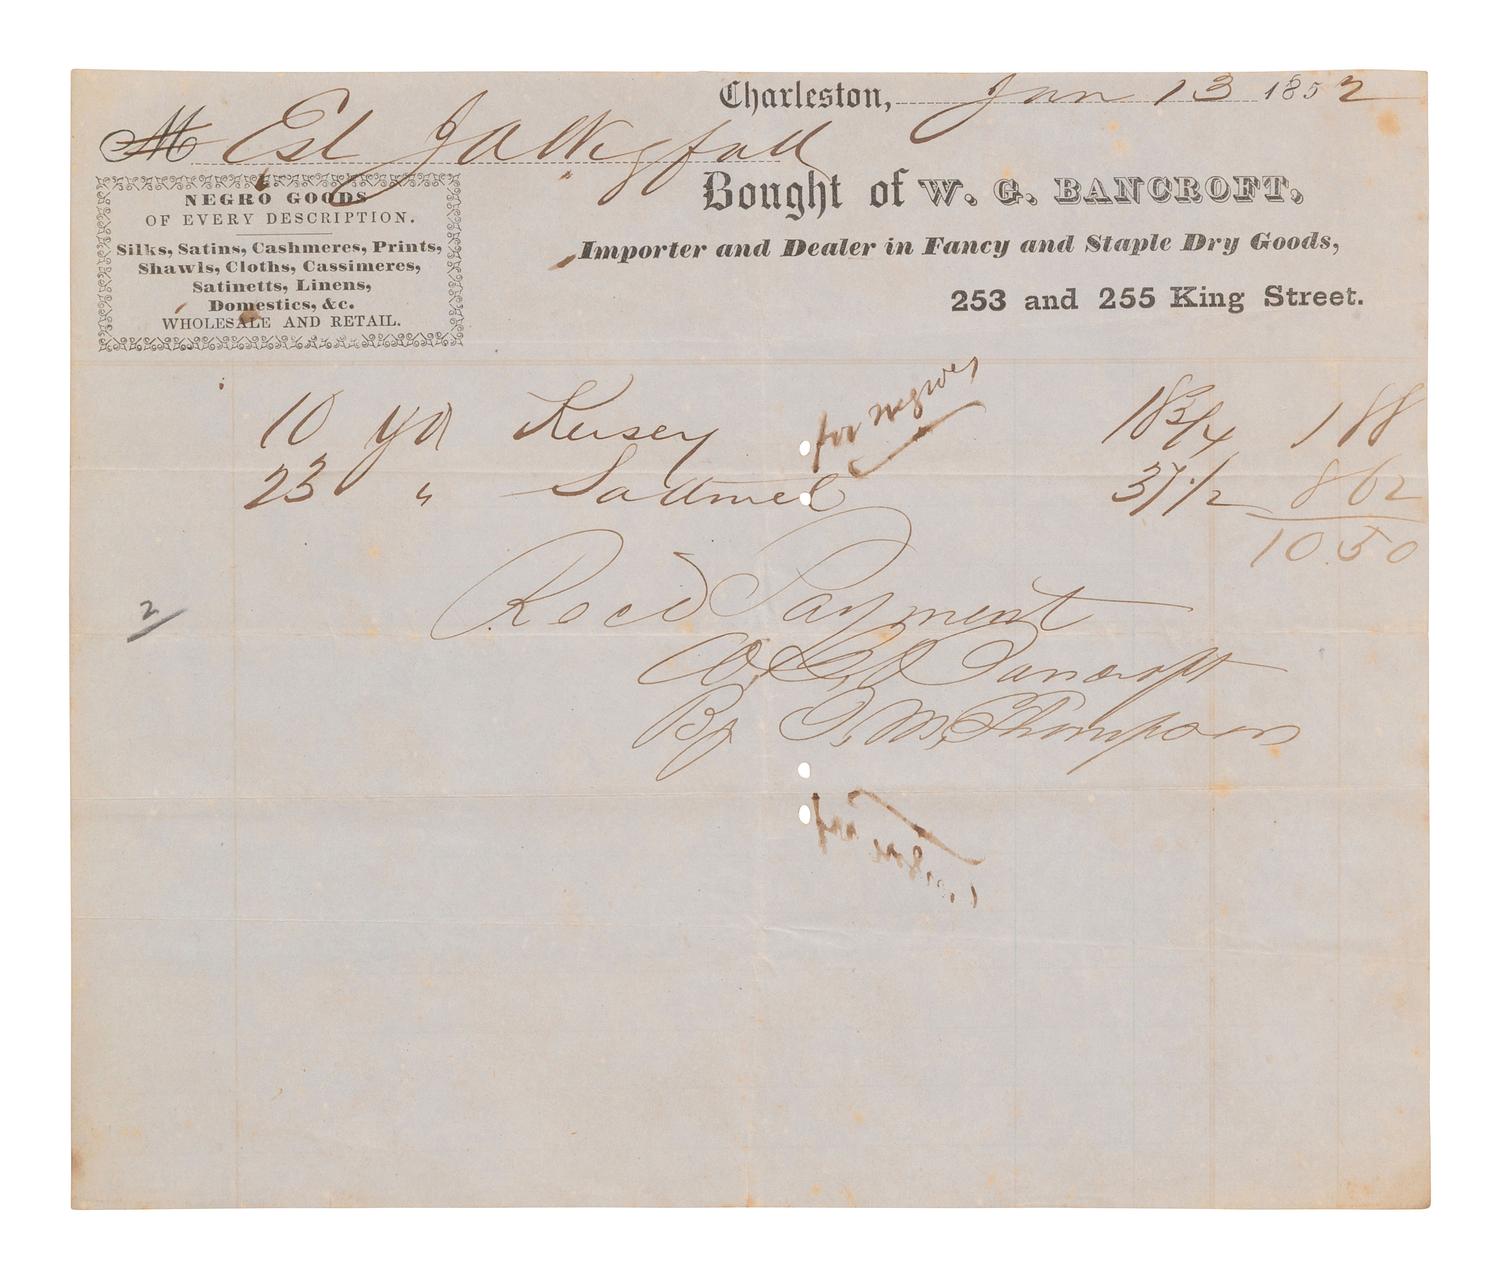 Charleston, Jan 13 1852
M Est J A Wigfall
NEGRO GOODS
OF EVERY DESCRIPTION.
Silks, Satins, Cashmeres, Prints,
Shawls, Cloths, Cassimeres,
Satinetts, Linens,
Domestics, &c.
WHOLESALE AND RETAIL.
Bought of W. G. BANCROFT,
Importer and Dealer in Fancy and Staple Dry Goods,
253 and 255 King Street.
10 yd Kersey for negroes 18 3/4 188
23 " Sattinet 37 1/2 862
10.50
Recd Payment
W. G. Bancroft
By T. M. Thompson
2